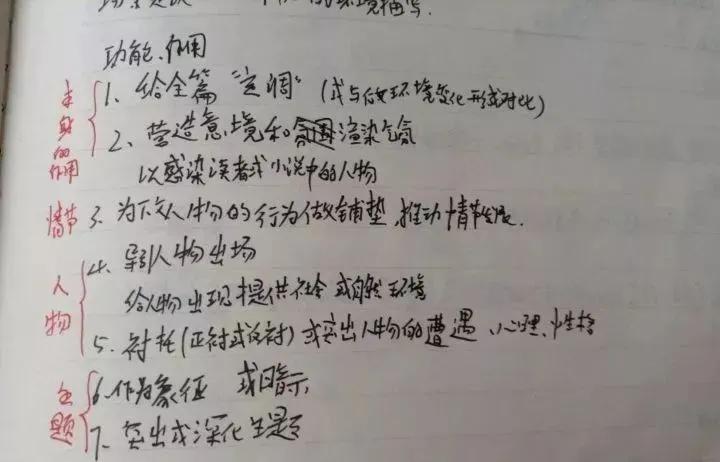 环境描写.
功能、作用
本身的作用
1、给全篇“定调”(或与后文环境变化形成对比)
2、营造意境和渲染气氛
以感染读者或小说中的人物
情节 3、为下文人物的行为做铺垫,推动情节发展.
人物
4、引人物出场
给人物出现提供社会或自然环境
5、衬托(正衬或反衬)或突出人物的遭遇、心理、性格
主题
6、作为象征 或暗示
7、突出或深化主题